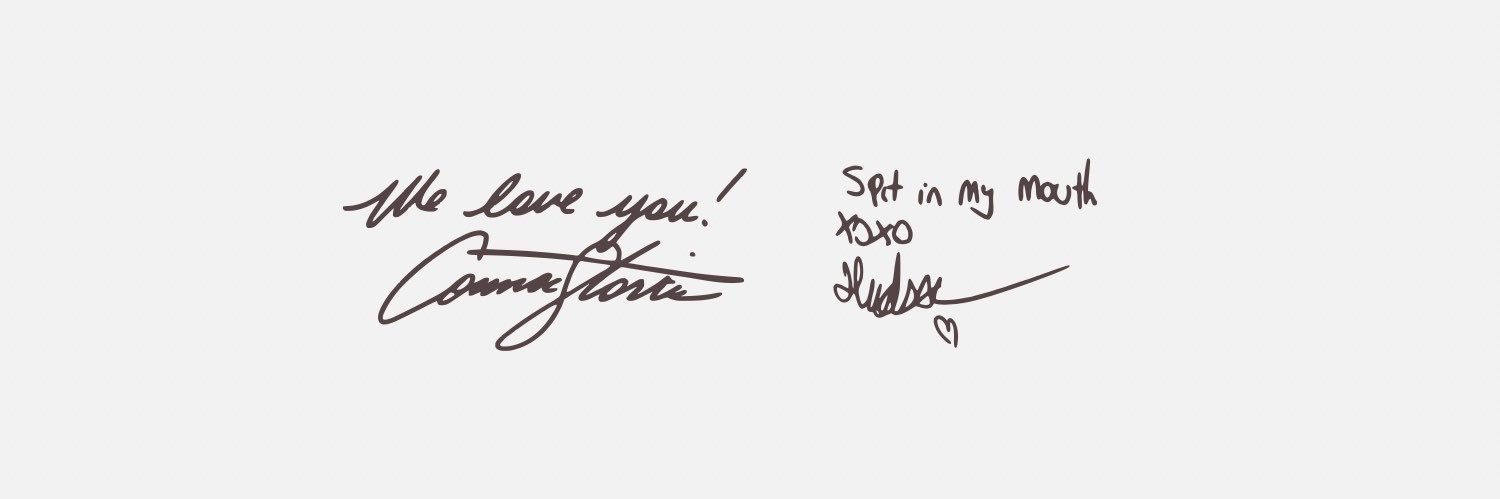 We love you!
Connor Storrie
Spit in my mouth
xoxo
Hudson